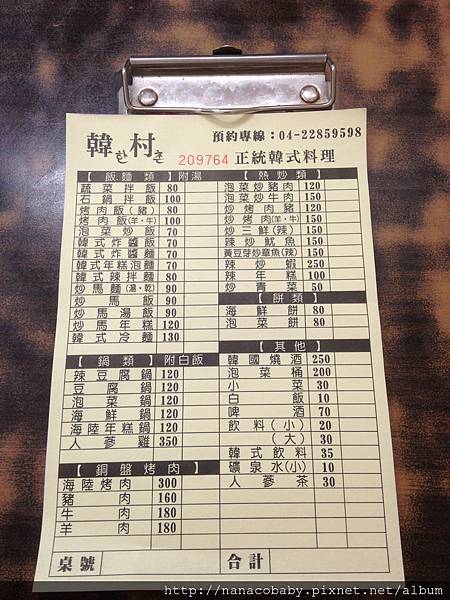 韓村
かんそんき
預約專線：04-22859598
209764 正統韓式料理
【飯.麵類】附湯
蔬菜拌飯 80
石鍋拌飯 100
烤肉飯(豬) 80
烤肉飯(羊、牛) 100
泡菜炒飯 70
韓式炸醬飯 70
韓式炸醬麵 70
韓式年糕泡麵 70
韓式辣拌麵 80
炒馬麵(湯、乾) 90
炒馬飯 90
炒馬湯飯 90
炒馬年糕 120
韓式冷麵 130
【鍋類】附白飯
辣豆腐鍋 120
豆腐鍋 120
泡菜鍋 120
海鮮鍋 120
海陸年糕鍋 120
人參雞 350
【銅盤烤肉】
海陸烤肉 300
豬肉 160
牛肉 180
羊肉 180
【熱炒類】
泡菜炒豬肉 120
泡菜炒牛肉 150
炒烤肉豬 120
炒烤肉(羊、牛) 150
炒三鮮(辣) 150
辣炒魷魚 150
黃豆芽炒章魚(辣) 150
辣炒蝦 250
辣年糕 100
炒青菜 50
【餅類】
海鮮餅 80
泡菜餅 80
【其他】
韓國燒酒 250
泡菜桶 200
小菜 30
白飯 10
啤酒 70
飲料(小) 20
(大) 30
韓式飲料 35
礦泉水(小) 10
人參茶 30
桌號
合計
http://nanacobaby.pixnet.net/album